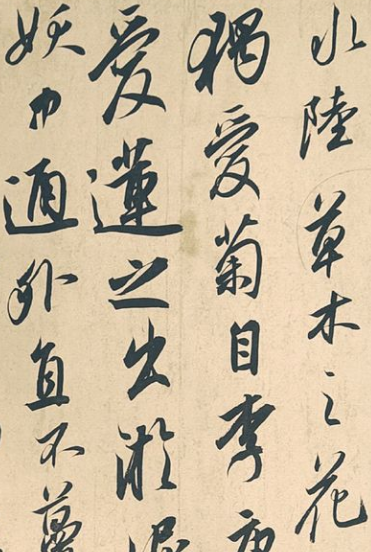 水陸草木之花
獨愛菊自李
愛蓮之出淤
妖中通外直不蔓